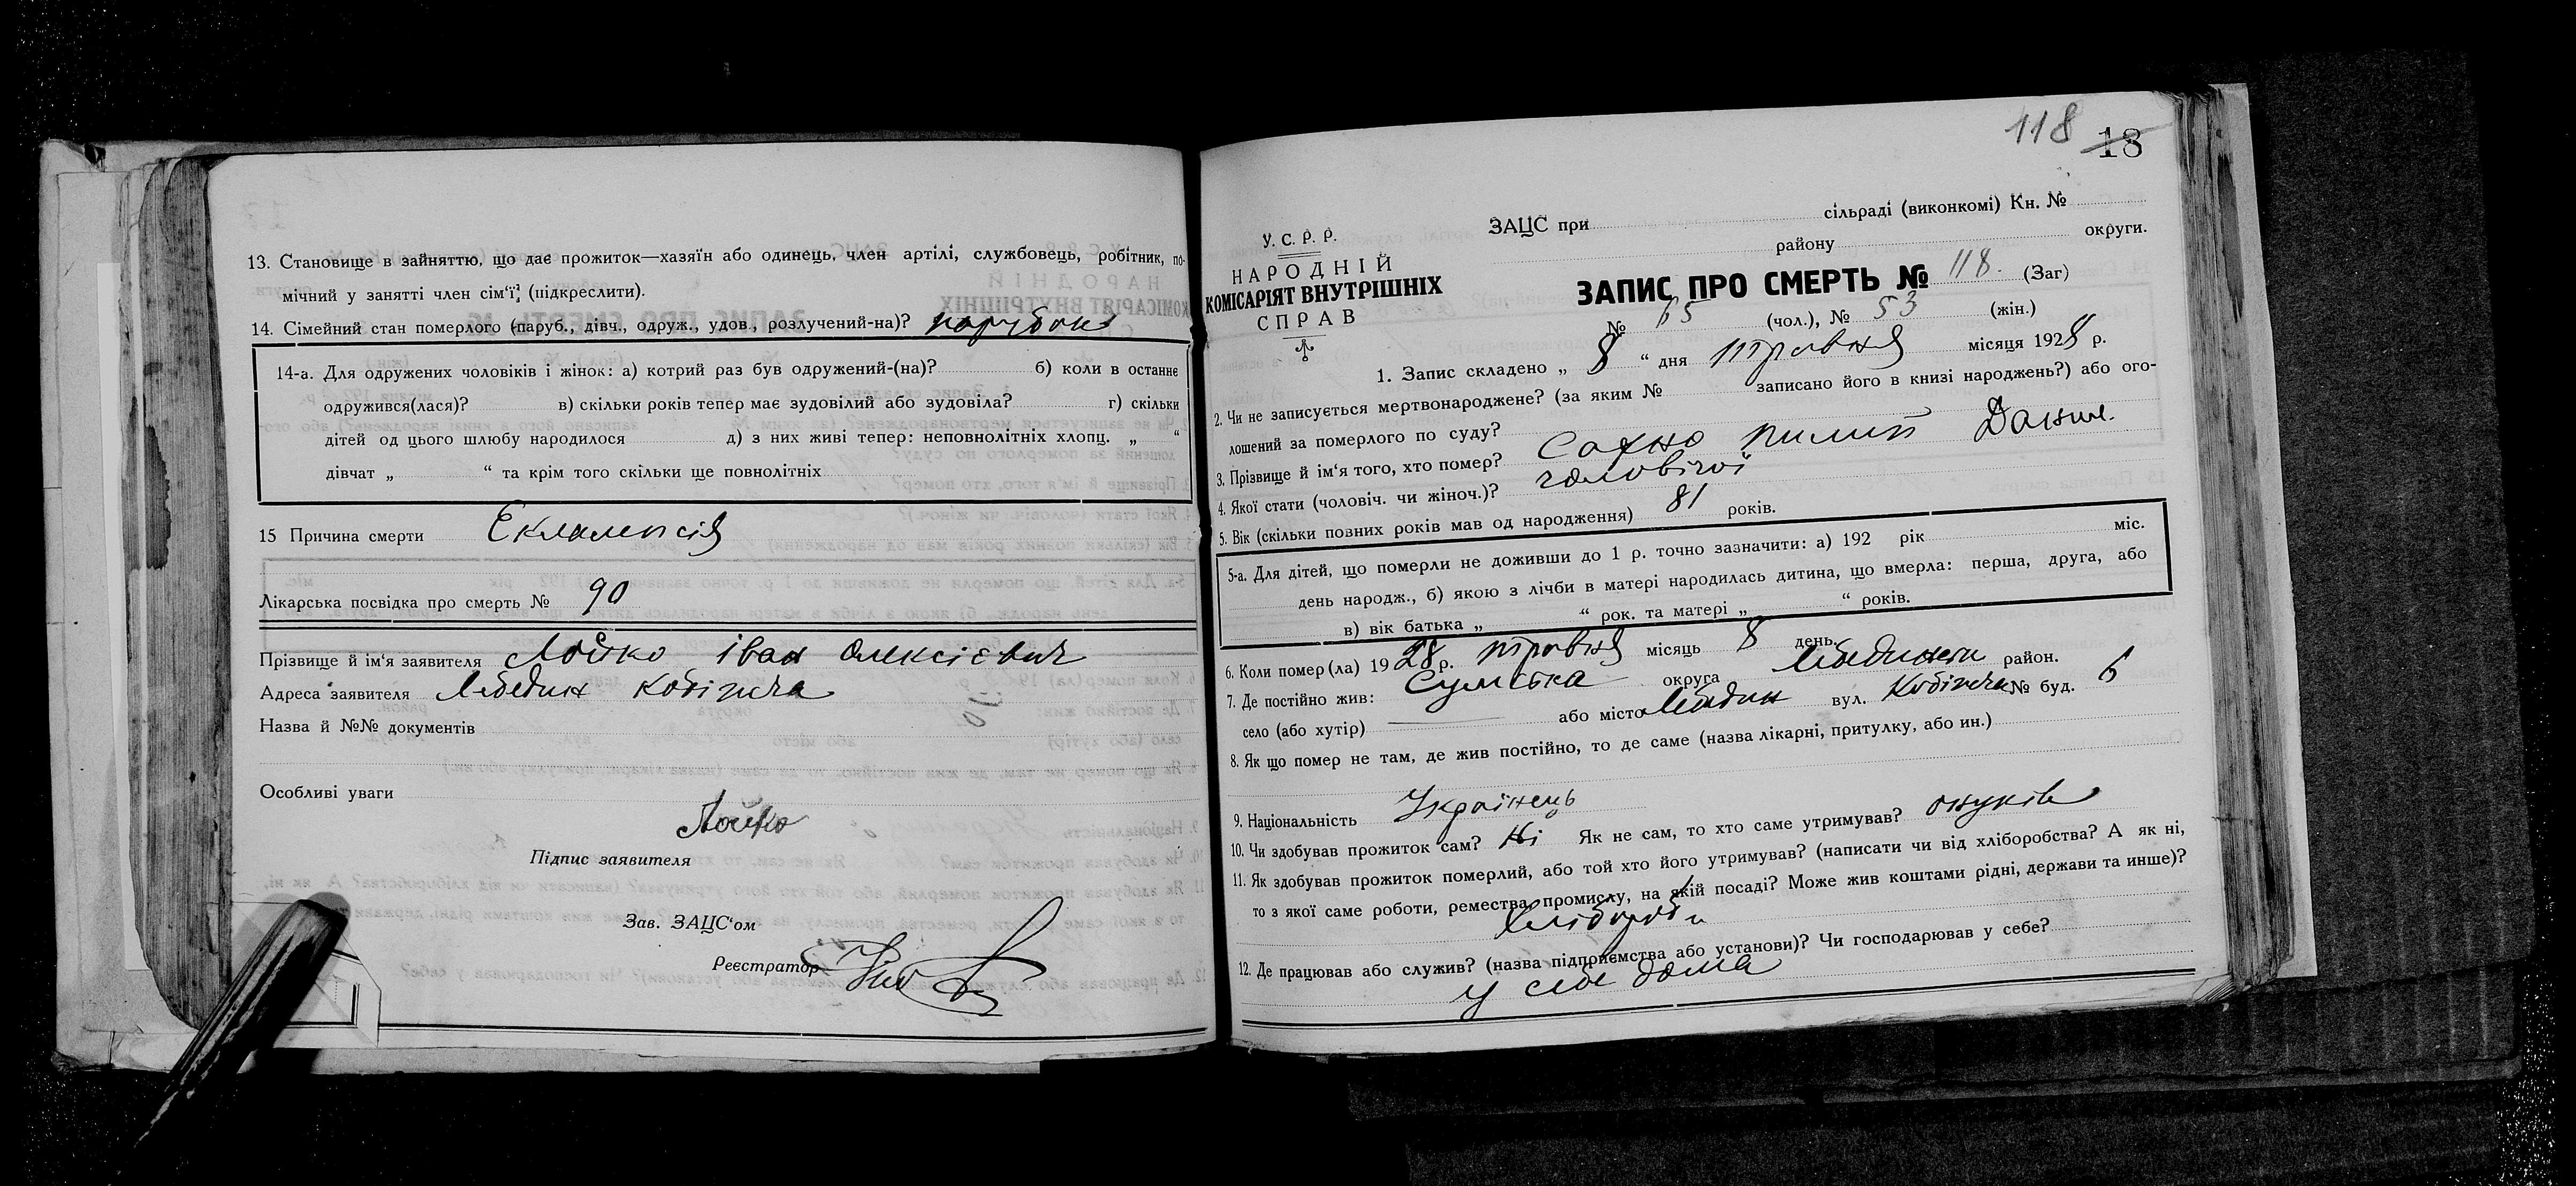 13. Становище в зайняттю, що дає прожиток—хазяїн або одинець, член артілі, службовець, робітник, по-
мічний у занятті член сім'ї, (підкреслити).
14. Сімейний стан померлого (паруб., дівч., одруж., удов., розлучений-на)? парубок
14-а. Для одружених чоловіків і жінок: а) котрий раз був одружений-(на)? б) коли в останнє
одружився(лася)? в) скільки років тепер має зудовілий або зудовіла? г) скільки
дітей од цього шлюбу народилося д) з них живі тепер: неповнолітніх хлопц. „ “
дівчат „ “ та крім того скільки ще повнолітніх
15 Причина смерти Еклампсія
Лікарська посвідка про смерть № 90
Прізвище й ім'я заявителя Лойко Іван Олексієвич
Адреса заявителя Лебедин Кобіжча
Назва й №№ документів
Особливі уваги
Лойко
Підпис заявителя
Зав. ЗАЦС'ом
Реєстратор
118 18
ЗАЦС при сільраді (виконкомі) Кн. №
району округи.
У. С. Р. Р.
НАРОДНІЙ
КОМІСАРІЯТ ВНУТРІШНІХ
СПРАВ
ЗАПИС ПРО СМЕРТЬ № 118. (Заг)
№ 65 (чол.), № 53 (жін.)
1. Запис складено „ 8 “ дня травня місяця 1928 р.
2. Чи не записується мертвонароджене? (за яким № записано його в книзі народжень?) або ого-
лошений за померлого по суду?
3. Прізвище й ім'я того, хто помер? Сахно Пилип Данил.
4. Якої стати (чоловіч. чи жіноч.)? чоловічої
5. Вік (скільки повних років мав од народження) 81 років.
5-а. Для дітей, що померли не доживши до 1 р. точно зазначити: а) 192 рік міс.
день народж., б) якою з лічби в матері народилась дитина, що вмерла: перша, друга, або
в) вік батька „ “ рок. та матері „ “ років.
6. Коли помер(ла) 1928 р. травня місяць 8 день.
7. Де постійно жив: Сумська округа Лебединськ район.
село (або хутір) або місто Лебедин вул. Кобіжча № буд. 6
8. Як що помер не там, де жив постійно, то де саме (назва лікарні, притулку, або ин.)
9. Національність Українець
10. Чи здобував прожиток сам? Ні Як не сам, то хто саме утримував? онуків
11. Як здобував прожиток померлий, або той хто його утримував? (написати чи від хліборобства? А як ні,
то з якої саме роботи, ремества, промислу, на якій посаді? Може жив коштами рідні, держави та инше)?
хлібороби
12. Де працював або служив? (назва підприємства або установи)? Чи господарював у себе?
У себе дома